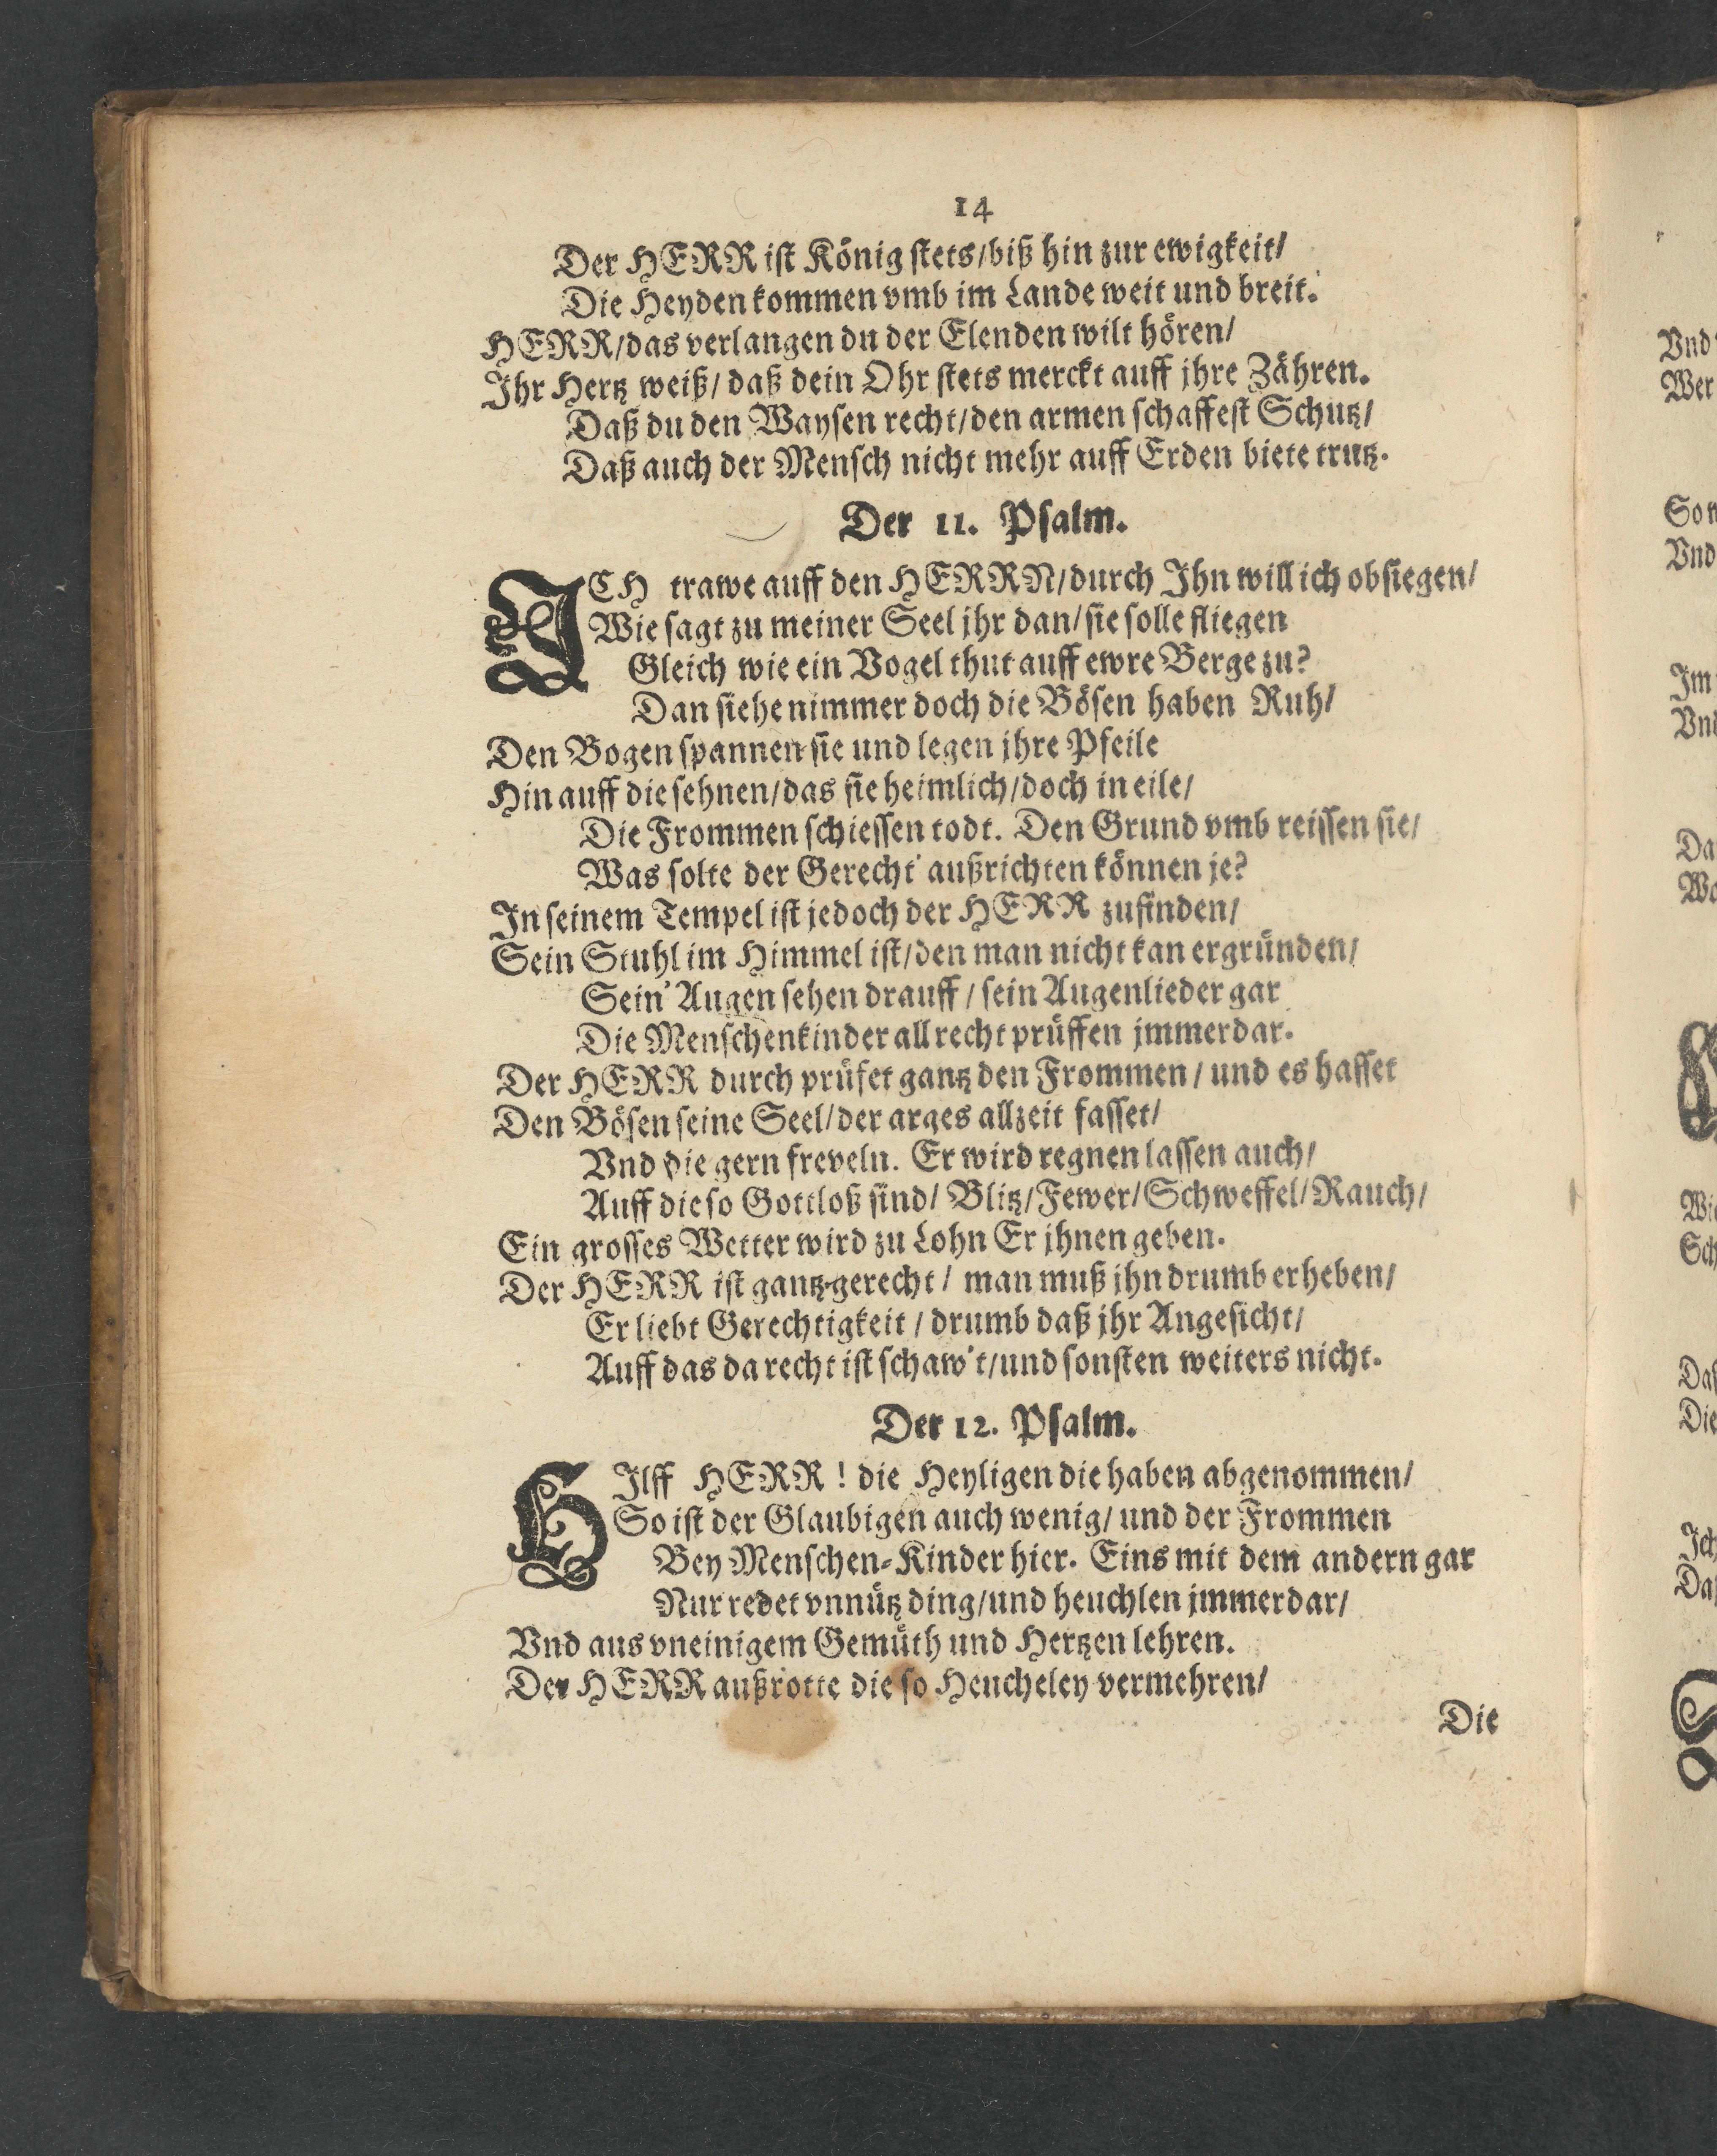 14
Der HERR ist König stets/biß hin zur ewigkeit/
Die Heyden kommen vmb im Lande weit und breit.
HERR/das verlangen du der Elenden wilt hören/
Ihr Hertz weiß/ daß dein Ohr stets merckt auff jhre Zähren.
Daß du den Waysen recht/den armen schaffest Schutz/
Daß auch der Mensch nicht mehr auff Erden biete trutz.
Der 11. Psalm.
ICH trawe auff den HERRN/durch Ihn will ich obsiegen/
Wie sagt zu meiner Seel jhr dan/sie solle fliegen
Gleich wie ein Vogel thut auff ewre Berge zu?
Dan siehe nimmer doch die Bösen haben Ruh/
Den Bogen spannen sie und legen jhre Pfeile
Hin auff die sehnen/das sie heimlich/doch in eile/
Die Frommen schiessen todt. Den Grund vmb reissen sie/
Was solte der Gerecht' außrichten können je?
In seinem Tempel ist jedoch der HERR zufinden/
Sein Stuhl im Himmel ist/den man nicht kan ergründen/
Sein' Augen sehen drauff/sein Augenlieder gar
Die Menschenkinder all recht prüffen jmmerdar.
Der HERR durch prüfet gantz den Frommen/ und es hasset
Den Bösen seine Seel/der arges allzeit fasset/
Vnd die gern freveln. Er wird regnen lassen auch/
Auff die so Gottloß sind/ Blitz/Fewer/Schweffel/Rauch/
Ein grosses Wetter wird zu Lohn Er jhnen geben.
Der HERR ist gantz gerecht/ man muß jhn drumb erheben/
Er liebt Gerechtigkeit/ drumb daß jhr Angesicht/
Auff das da recht ist schaw't/und sonsten weiters nicht.
Der 12. Psalm.
HIlff HERR! die Heyligen die haben abgenommen/
So ist der Glaubigen auch wenig/ und der Frommen
Bey Menschen-Kinder hier. Eins mit dem andern gar
Nur redet vnnütz ding/und heuchlen jmmerdar/
Vnd aus vneinigem Gemüth und Hertzen lehren.
Der HERR außrotte die so Heucheley vermehren/
Die
Vnd
Wer
So
Vnd
Im
Da
Wie
Sch
Die
Ich